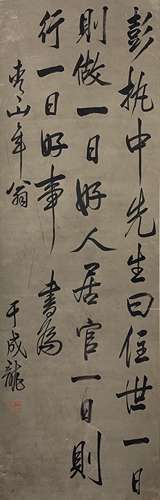 彭执中先生曰住世一日
则做一日好人居官一日则
行一日好事 書為
老年翁
于成龍